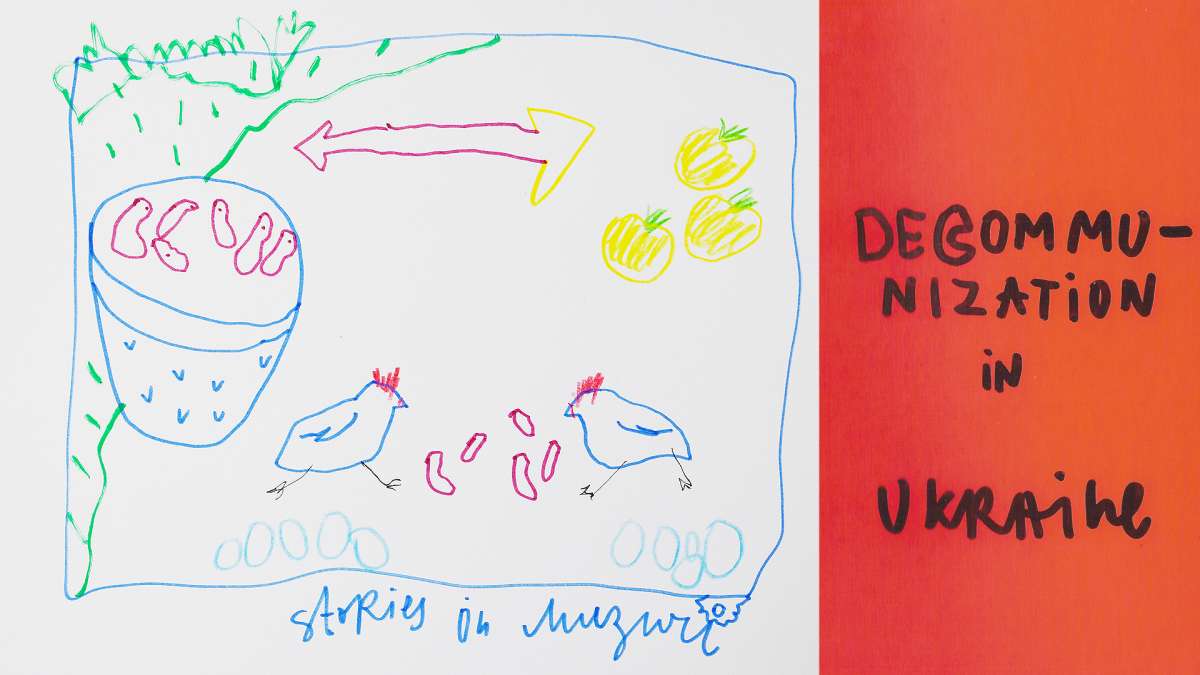 stories in
DECOMMU-
NIZATION
in
UKRAine